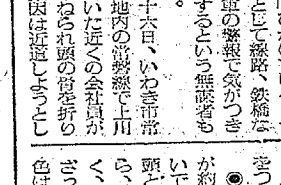 として線路、鉄橋な
車の警報で気がつき
するという無謀者も
。
十六日、いわき市常
地内の常磐線で上川
いた近くの会社員が
ねられ頭の骨を折り
因は近道しようとし
をつ
が約
いで
頭と
ら、
く、
さっ
色は